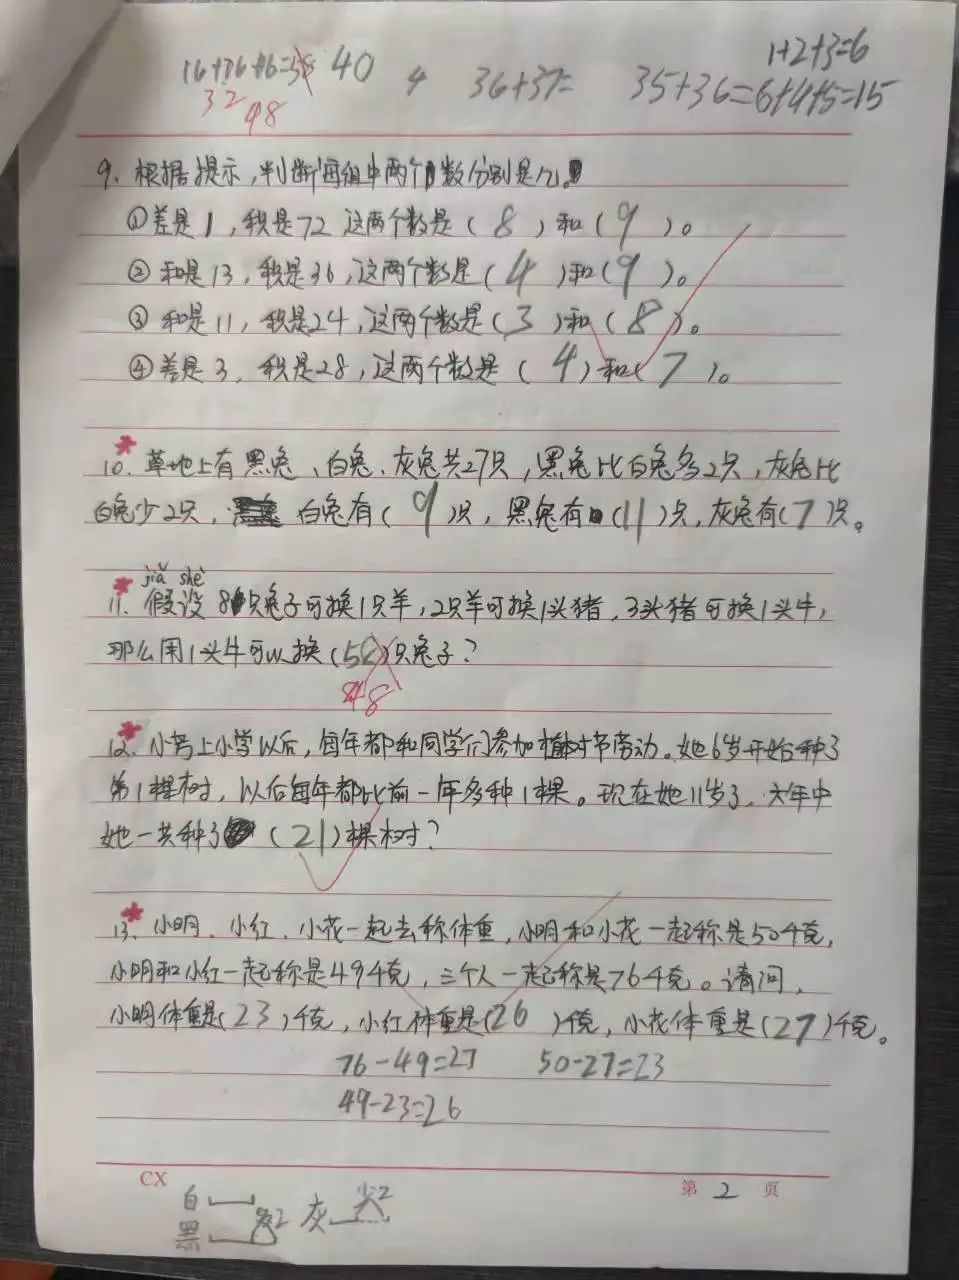 16+16+16=58 40 4 36+37= 35+36=6+4+5=15
1+2+3=6
32
48
9. 根据提示,判断每组中两个数分别是几。
①差是1,积是72 这两个数是(8)和(9)。
②和是13,积是36,这两个数是(4)和(9)。
③和是11,积是24,这两个数是(3)和(8)。
④差是3,积是28,这两个数是(4)和(7)。
10. 草地上有黑兔、白兔、灰兔共27只,黑兔比白兔多2只,灰兔比
白兔少2只,白兔有(9)只,黑兔有(11)只,灰兔有(7)只。
jiǎ shè
11. 假设8只兔子可换1只羊,2只羊可换1头猪,3头猪可换1头牛,
那么用1头牛可以换()只兔子?
48
12. 小芳上小学以后,每年都和同学们参加植树节劳动。她6岁开始种了
第1棵树,以后每年都比前一年多种1棵。现在她11岁了,六年中
她一共种了(21)棵树?
13. 小明、小红、小花一起去称体重,小明和小花一起称是50千克,
小明和小红一起称是49千克,三个人一起称是76千克。请问,
小明体重是(23)千克,小红体重是(26)千克,小花体重是(27)千克。
76-49=27 50-27=23
49-23=26
CX
第 2 页
白
黑 多2 灰 少2